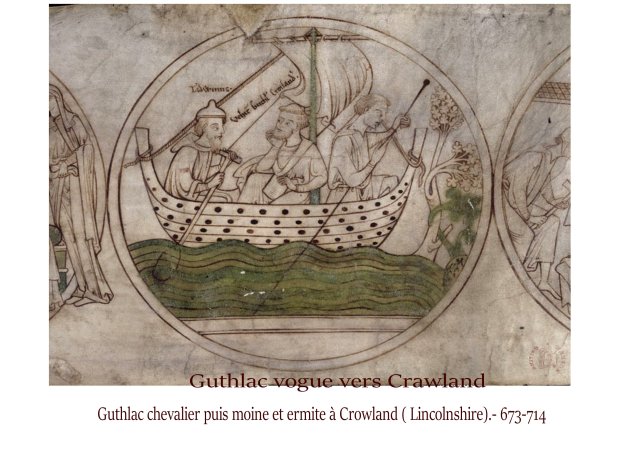 Guthlac vogue vers Crawland
Guthlac chevalier puis moine et ermite à Crowland ( Lincolnshire).- 673-714